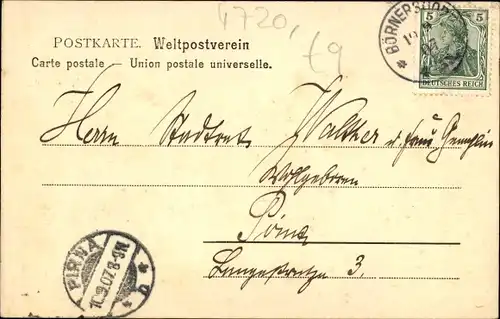 4720,
t9
POSTKARTE. Weltpostverein
Carte postale — Union postale universelle.
BÖRNERSDORF
5 5
DEUTSCHES REICH
Herrn Stadtrat Walther u. Frau Gemahlin
Wohlgeboren
Pirna
Langestraße 3.
PIRNA
10.9.07.8-9N
* u *